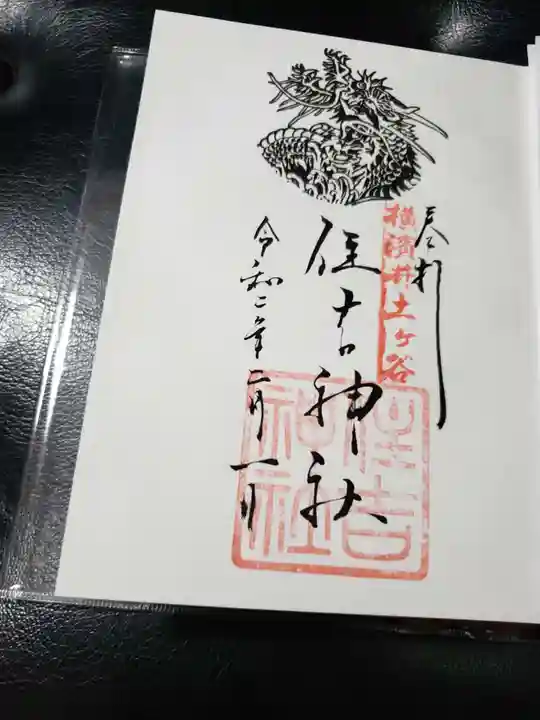 奉拝
横濱井土ヶ谷
住吉神社
住吉神社
令和二年二月一日